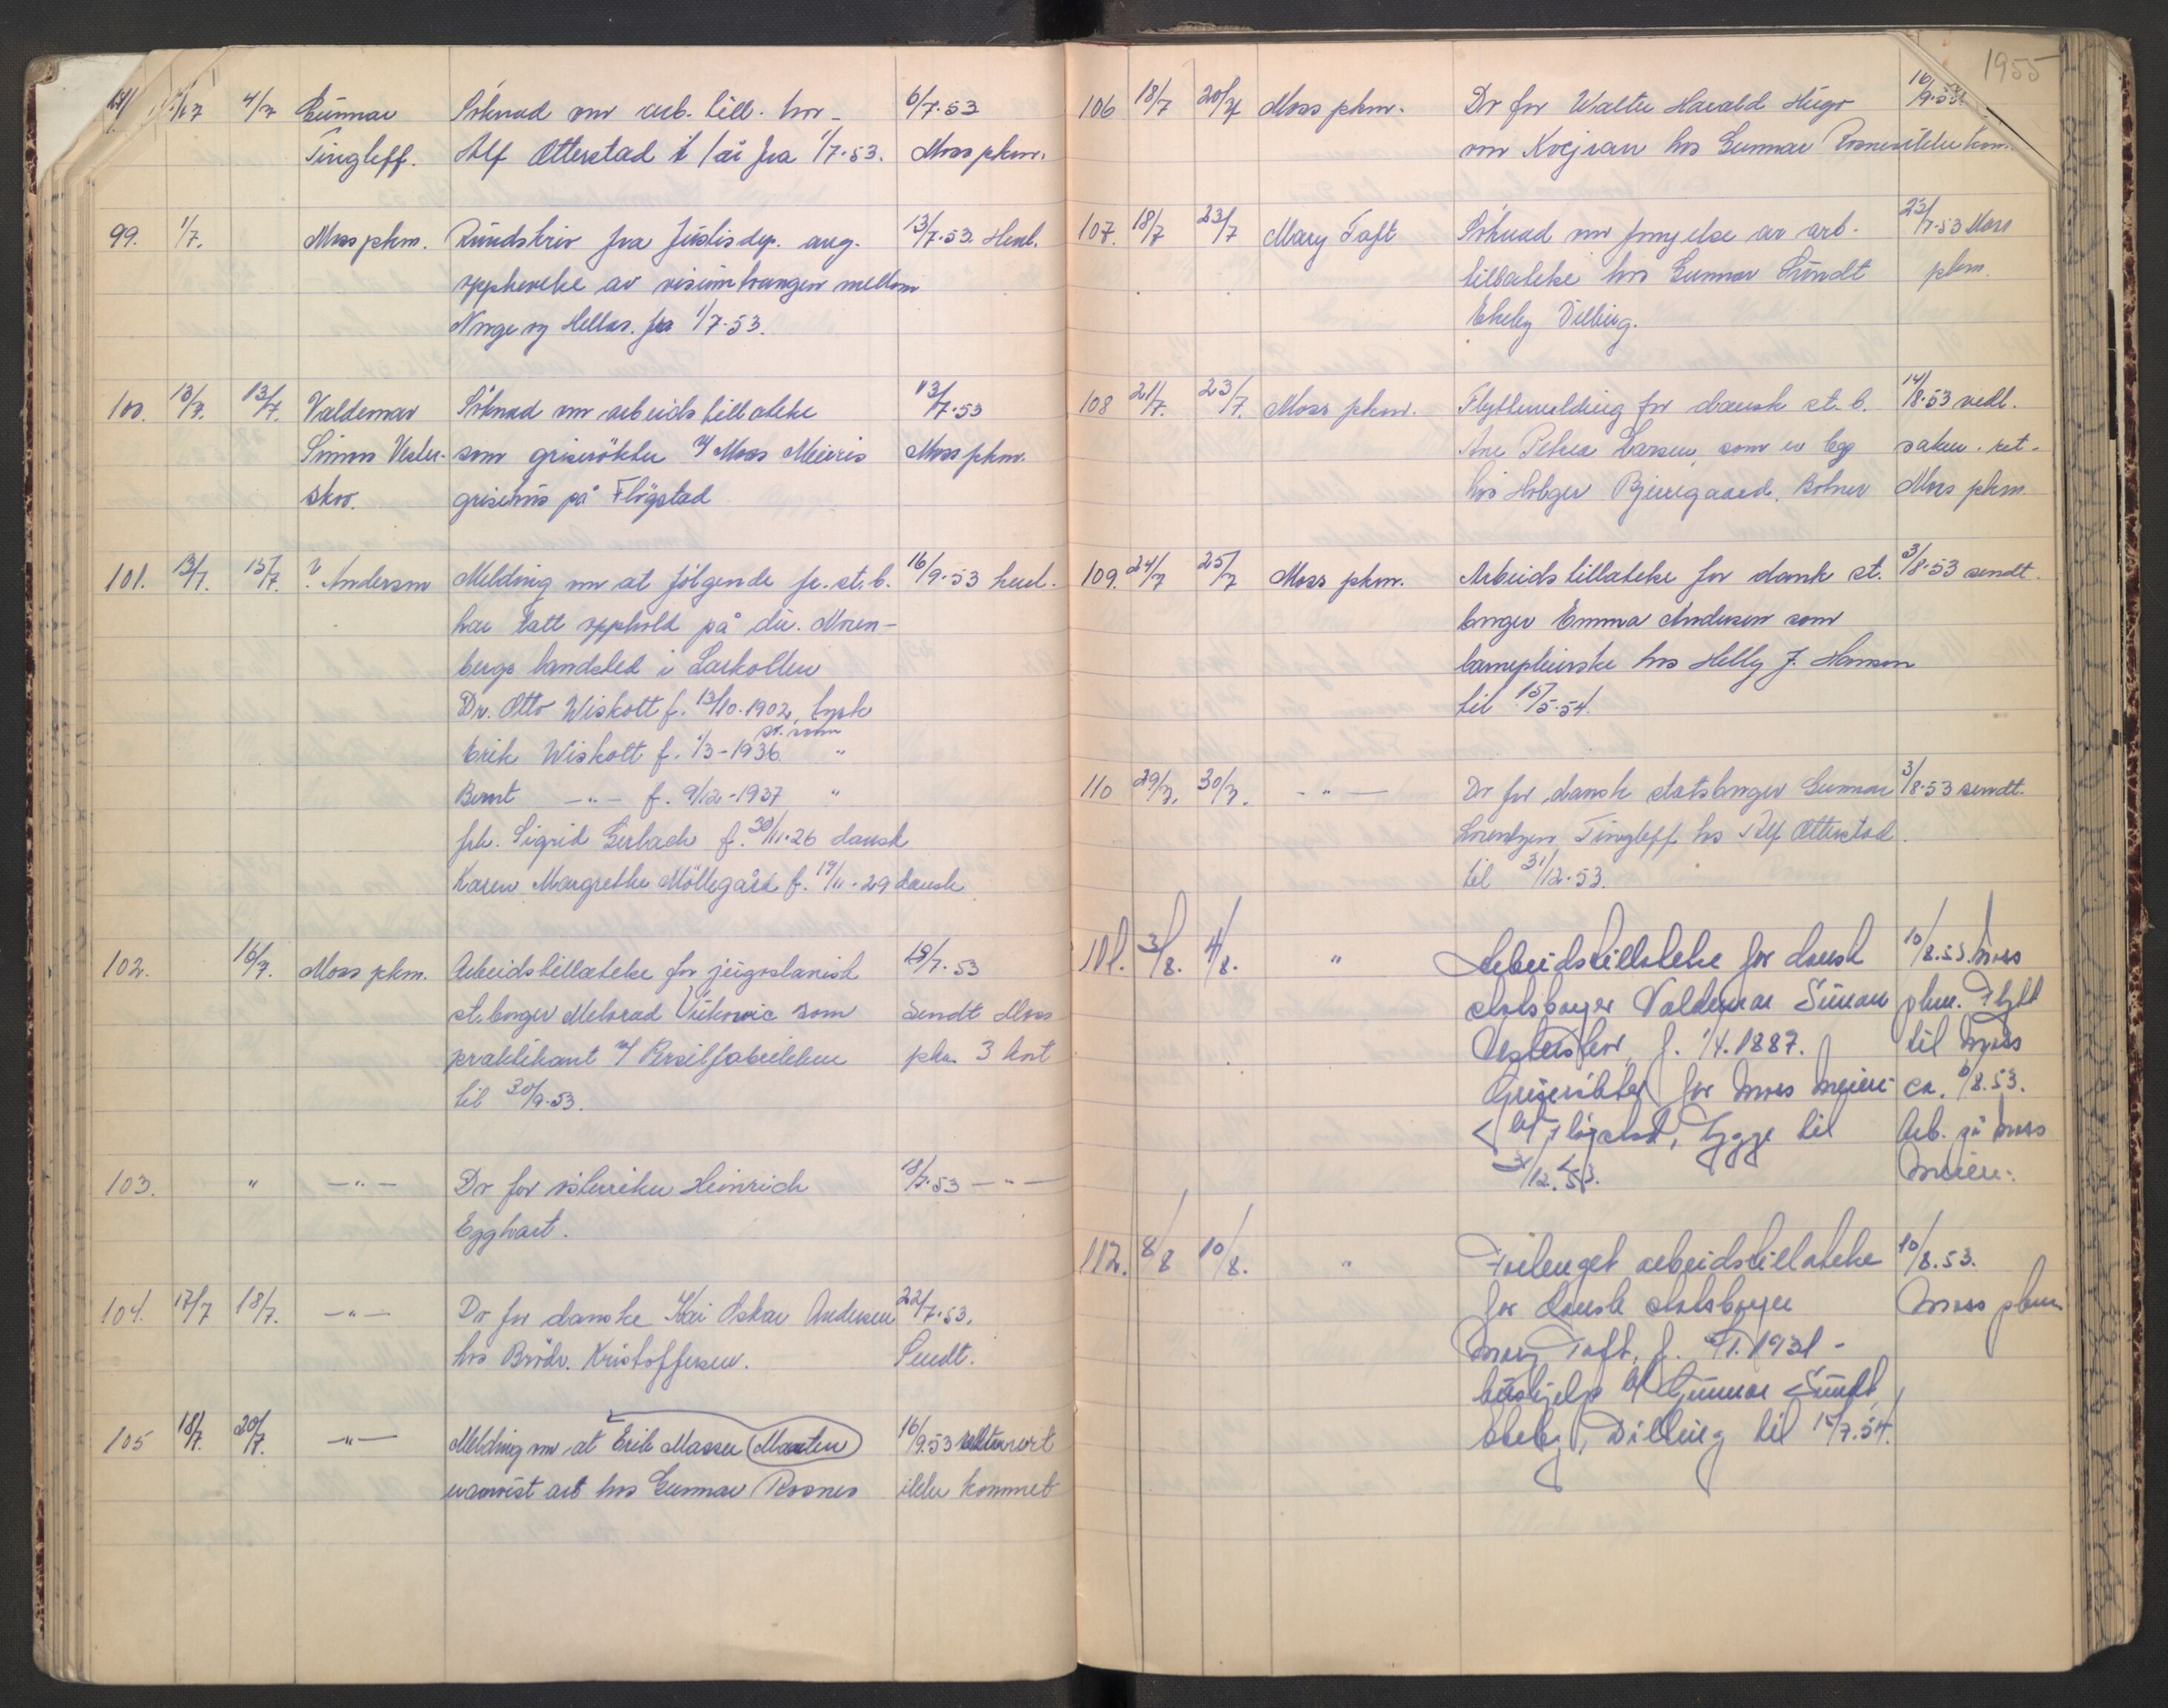 1/7 4/7 Gunnar Söknad om arb. till. hos 6/7.53
Tingleff. Alf Otterstad i 1 år fra 1/7.53. Moss pkm.
99. 1/7. Moss pkm. Rundskriv fra Justisdep. ang. 13/7.53. Henl.
opphevelse av visumtvangen mellom
Norge og Hellas. fra 1/7.53.
100. 13/7. 13/7. Valdemar Söknad om arbeidstillatelse 13/7.53
Simon Vester- som griserökter v/ Moss Meieris Moss pkm.
skov. grisehus på Flögstad
101. 13/7. 15/7. ? Anderson Melding om at fölgende fr. st. b. 16/9.53 henl.
har tatt opphold på dir. Moren-
bergs landsted i Larkollen
Dr. Otto Wiskott f. 13/10.1902, tysk
st. som
Erik Wiskott f. 1/3-1936 "
Bernt -"- f. 9/12-1937 "
frk. Sigrid Gerlach f. 30/11.26 dansk
Karen Margrethe Möllegård f. 19/11.29 dansk
102. 16/7. Moss pkm. Arbeidstillatelse for jugoslavisk 18/7.53
st.borger Melorad Vukovic som Sendt Moss
praktikant v/ Persilfabrikken pkm. 3 kort
til 30/9.53.
103. " -"- Do for österriker Heinrich 18/7.53 -"-
Egghart.
104. 17/7 18/7. -"- Do for danske Kai Oskar Andersen 22/7.53.
hos Brödr. Kristoffersen. Sendt.
105 18/7. 20/7. -"- Melding om at Erik Massen (Maarten) 16/9.53 returnert
hos Gunnar Rosnes ikke kommet
1955
106 18/7 20/7 Moss pkm. Do for Walter Harald Hugo 16/9.53.
von Kvejran hos Gunnar Rosnes ikke kom.
107. 18/7 23/7 Mary Toft Söknad om fornyelse av arb. 23/7.53 Moss
tillatelse hos Gunnar Sundt pkm.
Ekeby Dilling.
108 21/7. 23/7. Moss pkm. Flyttemelding for dansk st. b. 14/8.53 vedl.
Ane Petrea Larsen, som er saken. ret.
hos Holger Bjerregaard, Botner Moss pkm.
109. 24/7 25/7 Moss pkm. Arbeidstillatelse for dansk st. 3/8.53 sendt.
borger Emma Andersen som
barnepleierske hos Helly J. Hansen
til 15/5.54.
110 29/7. 30/7. -"- Do for dansk statsborger Gunnar 3/8.53 sendt.
Lorentzen Tingleff hos Alf Otterstad
til 31/12.53.
111. 3/8. 4/8. " Arbeidstillatelse for dansk 10/8.53. Moss
statsborger Valdemar Simon pkm. Flytt
Vesterskov, f. 1/4.1887. til Moss
Griserökter for Moss Meieri ca. 6/8.53.
Flögstad, Rygge til Arb. på Moss
31/12.53. Meieri.
112. 8/8 10/8. " Forlenget arbeidstillatelse 10/8.53.
for dansk statsborger Moss pkm
Mary Toft, f. 1931 -
hushjelp hos Gunnar Sundt,
Ekeby, Dilling til 15/7.54.